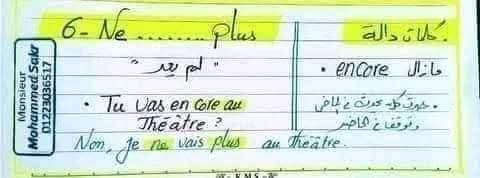 6- Ne ........ plus
كلمات دالة
" لم يعد "
• encore مازال
• Tu vas encore au
Théâtre ?
• حدث كان يحدث في الماضي
وتوقف في الحاضر
Non, je ne vais plus au théâtre.
Monsieur
Mohammed Sakr
01223036517
KMS